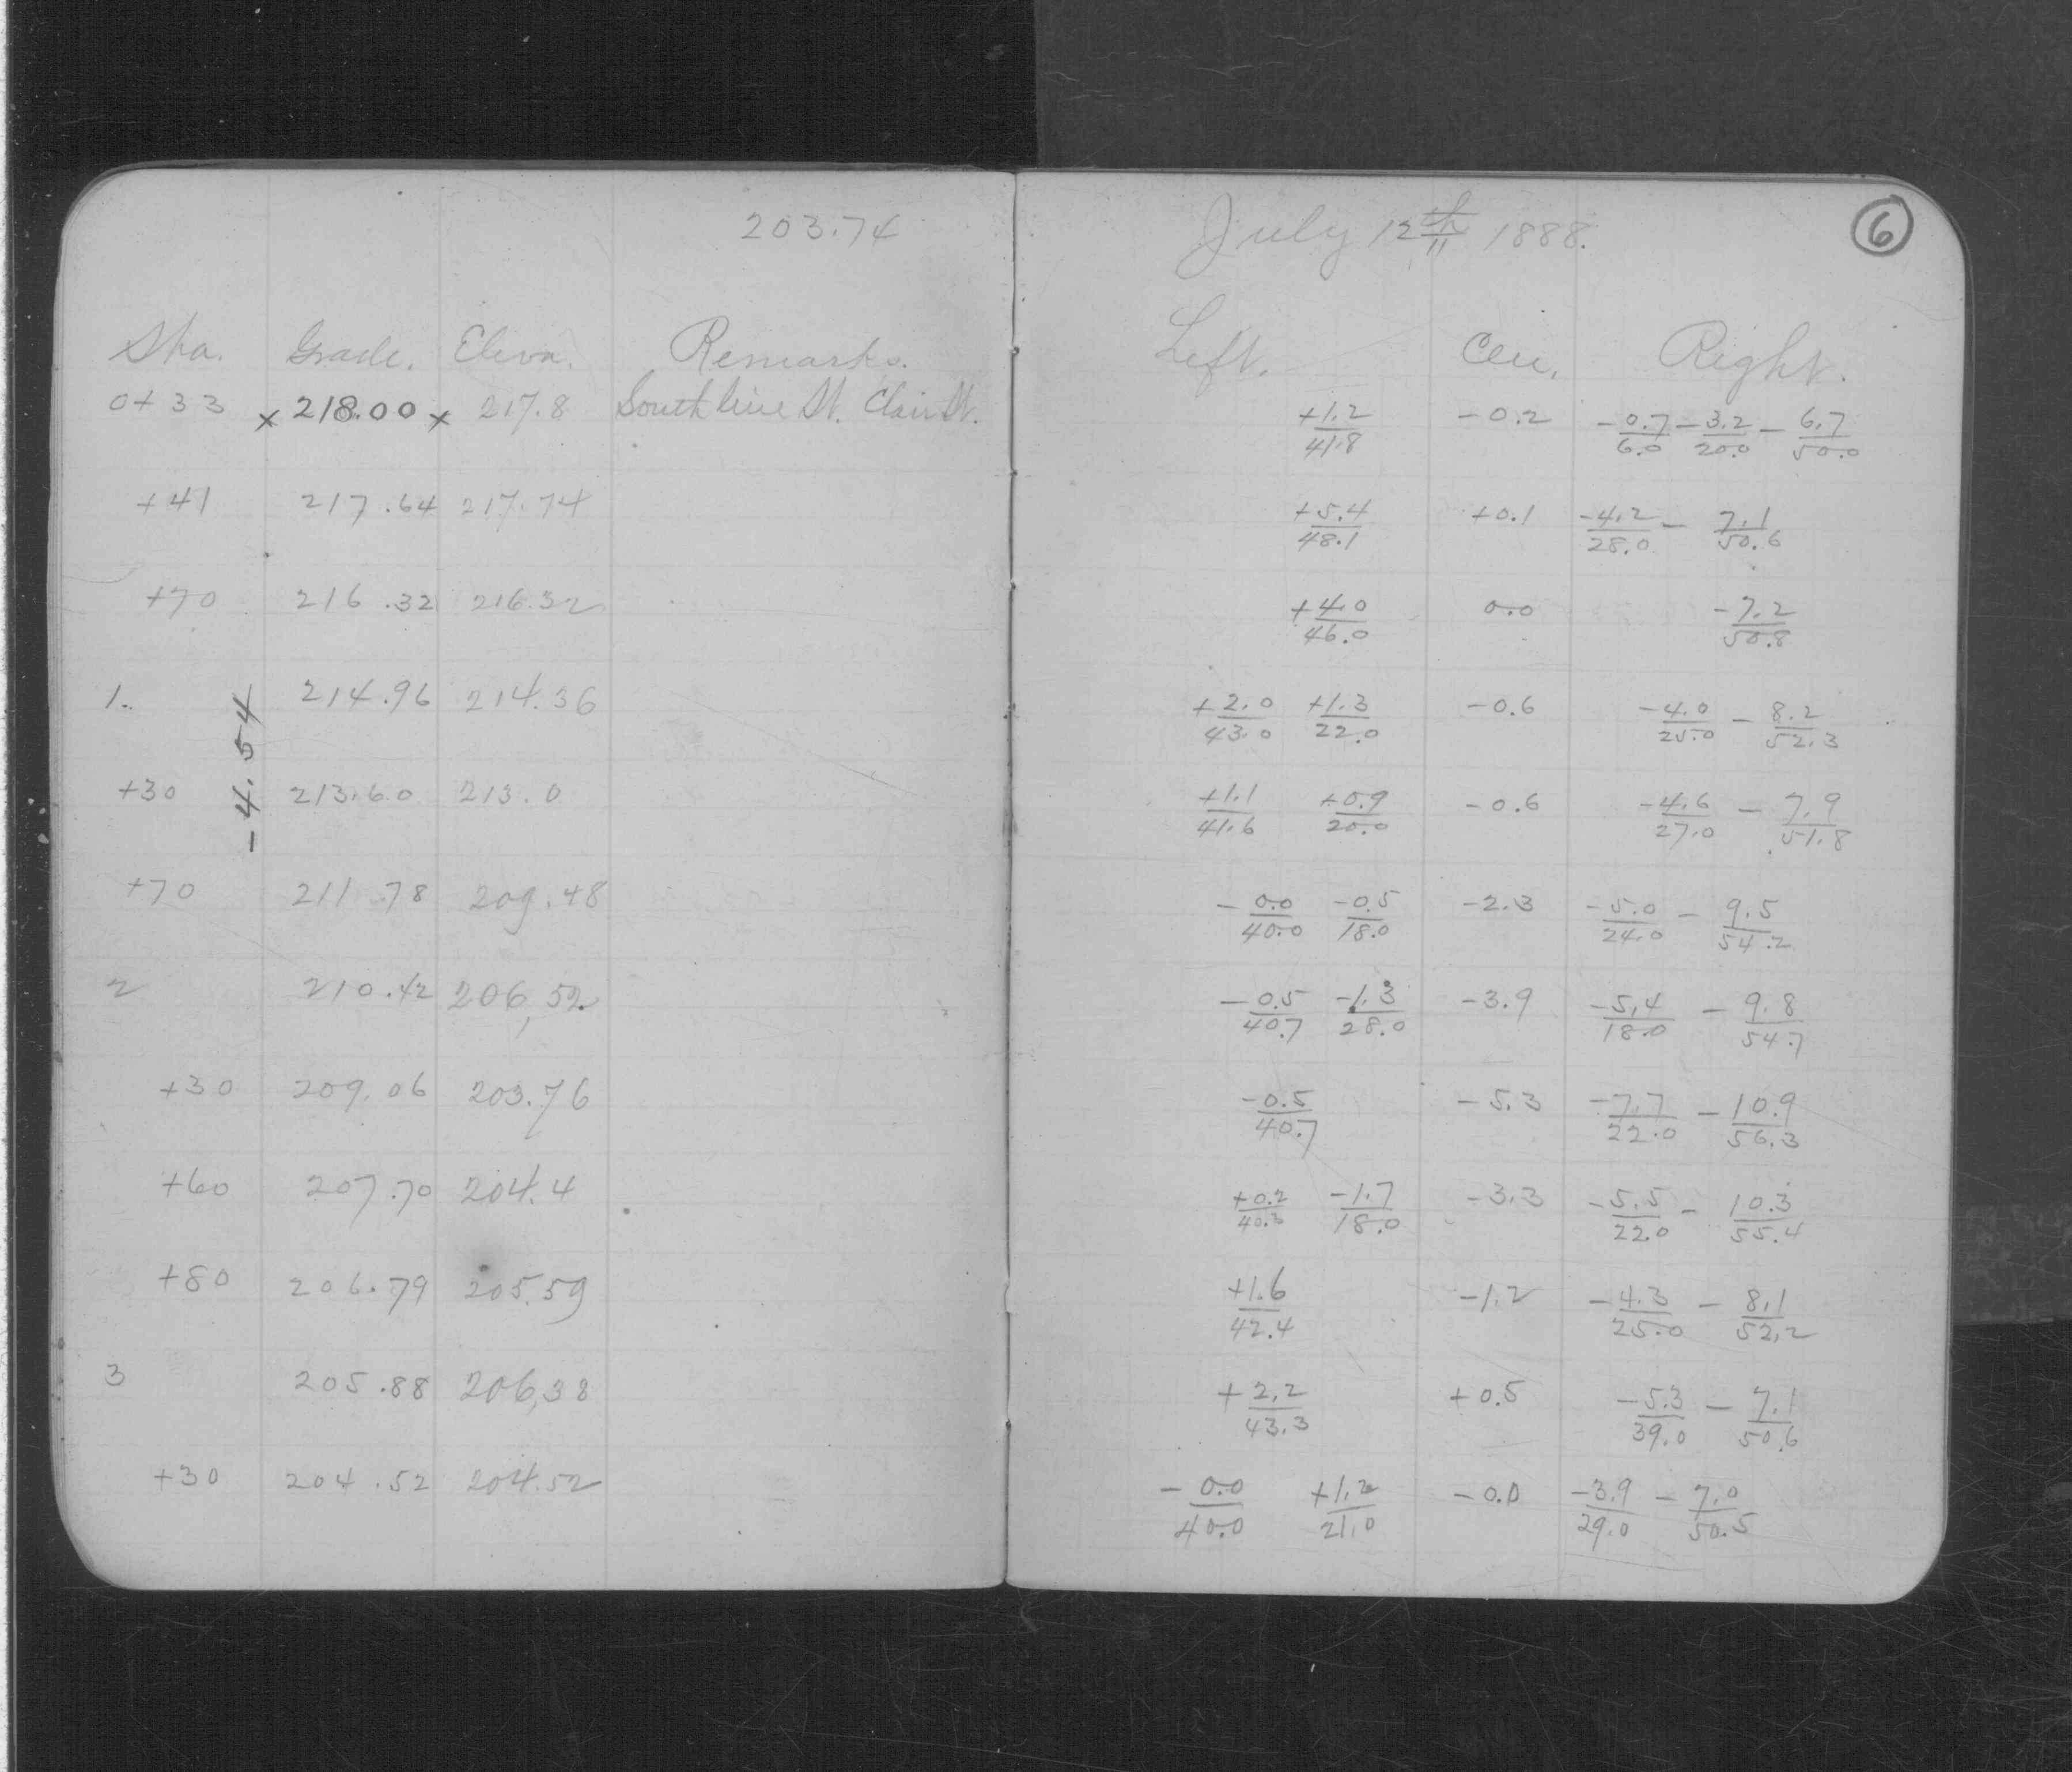 203.74
Sta. Grade. Eleva. Remarks.
0+33 x 218.00 x 217.8 South line St. Clair St.
+41 217.64 217.74
+70 216.32 216.32
1. 214.96 214.36
-4.54
+30 213.60 213.0
+70 211.78 209.48
2 210.42 206,52
+30 209.06 203.76
+60 207.70 204.4
+80 206.79 205.59
3 205.88 206,38
+30 204.52 204.52
July 12th 1888.
6
Left. Cen. Right.
+1.2/41.8 -0.2 -0.7/6.0 -3.2/20.0 - 6.7/50.0
+5.4/48.1 +0.1 -4.2/28.0 - 7.1/50.6
+4.0/46.0 0.0 -7.2/50.8
+2.0/43.0 +1.3/22.0 -0.6 -4.0/25.0 - 8.2/52.3
+1.1/41.6 +0.9/20.0 -0.6 -4.6/27.0 - 7.9/51.8
- 0.0/40.0 -0.5/18.0 -2.3 -5.0/24.0 - 9.5/54.2
-0.5/40.7 -1.3/28.0 -3.9 -5.4/18.0 - 9.8/54.7
-0.5/40.7 -5.3 -7.7/22.0 - 10.9/56.3
+0.2/40.3 -1.7/18.0 -3.3 -5.5/22.0 - 10.3/55.4
+1.6/42.4 -1.2 -4.3/25.0 - 8.1/52.2
+2.2/43.3 +0.5 -5.3/39.0 - 7.1/50.6
- 0.0/40.0 +1.2/21.0 -0.0 -3.9/29.0 - 7.0/50.5